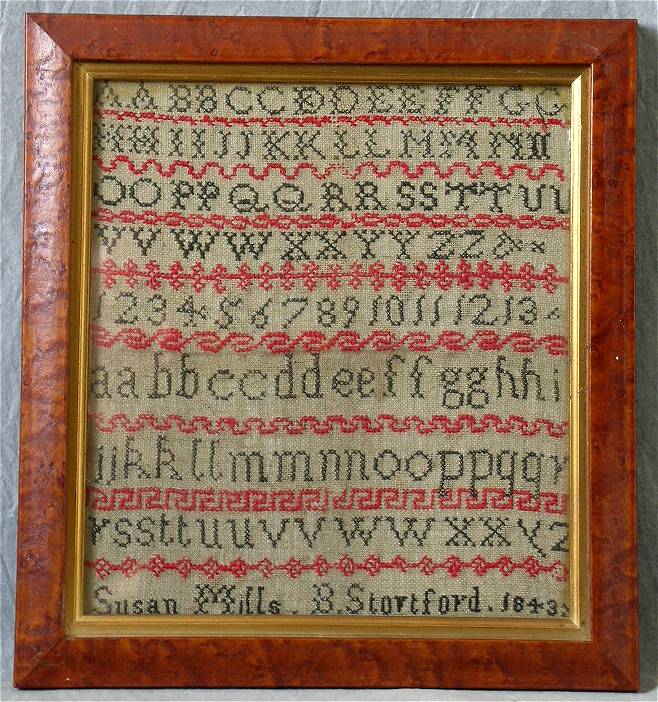 AABBCCDDEEFFGG
HHIIJJKKLLMMNN
OOPPQQRRSSTTUU
VVWWXXYYZZ&
12345678910111213
aabbccddeeffgghhi
ijjkkllmmnnooppqqr
rssttuuvvwwxxyz
Susan Mills. B. Stortford. 1843